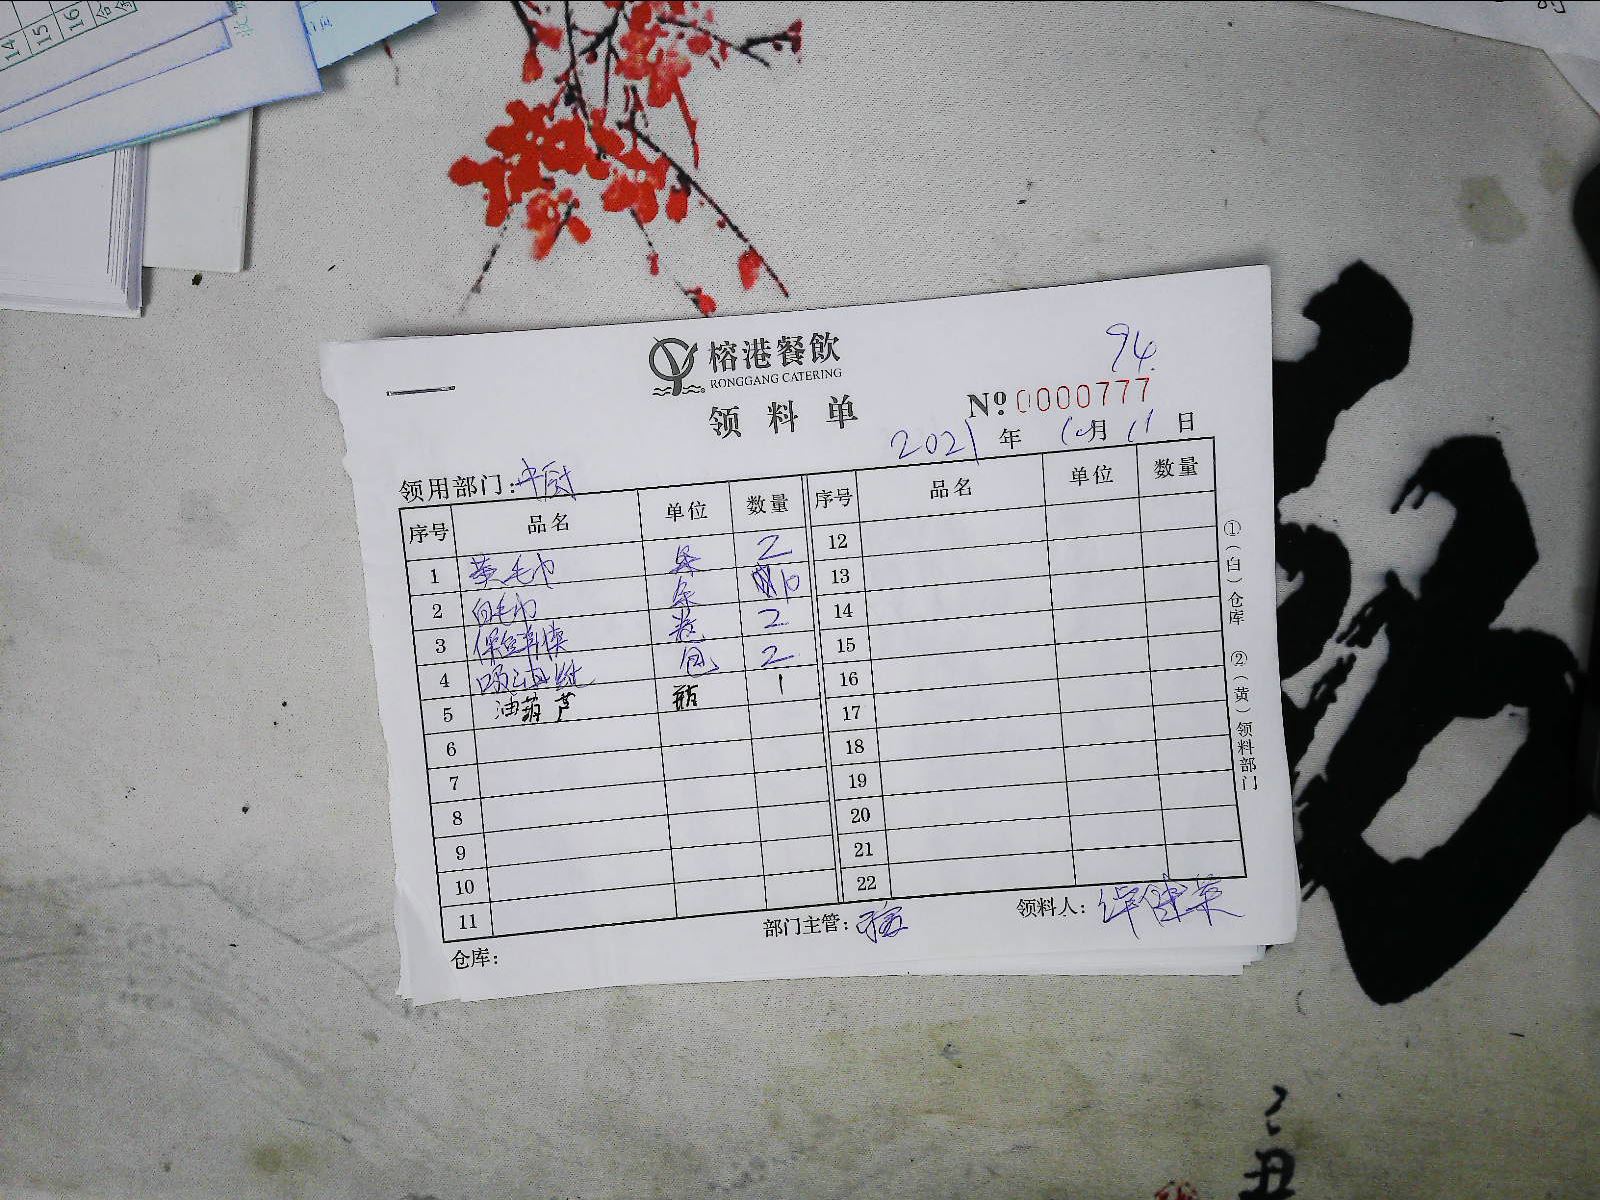 14
15
16
合金
榕港餐飲
RONGGANG CATERING
领料单
94.
Nº 0000777
2021年10月11日
领用部门:中厨
序号 品名 单位 数量 序号 品名 单位 数量
1 黄毛巾 条 2 12
2 白毛巾 条 10 13
3 保鲜膜 2 14
4 吸油纸 包 2 15
5 油葫芦 瓶 1 16
6 17
7 18
8 19
9 20
10 21
11 22
①(白)仓库 ②(黄)领料部门
仓库: 部门主管: 领料人:
丑